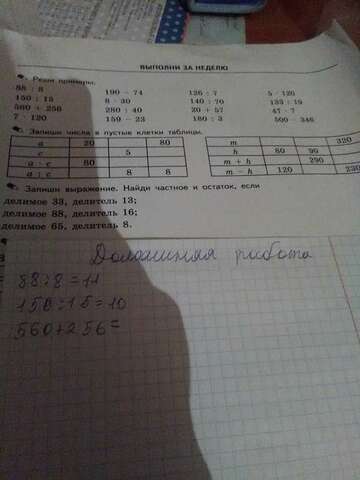 ВЫПОЛНИ ЗА НЕДЕЛЮ
Реши примеры.
88 : 8 190 – 74 126 : 7 5 · 126
150 : 15 8 · 30 140 : 70 133 : 19
560 + 256 280 : 40 20 + 57 47 · 7
7 · 120 159 – 23 180 : 3 500 – 346
Запиши числа в пустые клетки таблицы.
a 20 80
c 5
a · c 80
a : c 8 8
m 320
h 80 90
m + h 290
m – h 120 230
Запиши выражение. Найди частное и остаток, если
делимое 33, делитель 13;
делимое 88, делитель 16;
делимое 65, делитель 8.
Домашняя работа
88:8=11
150:15=10
560+256=